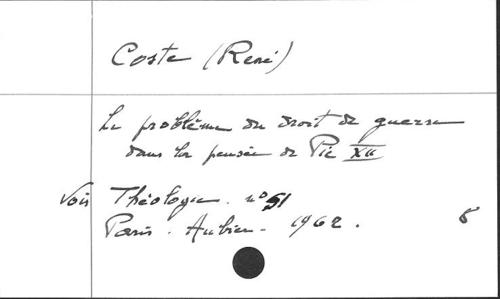 Coste (René)
Le problème du droit de guerre
dans la pensée de Pie XII
Voir Théologie. no 51
Paris. Aubier. 1962. 8